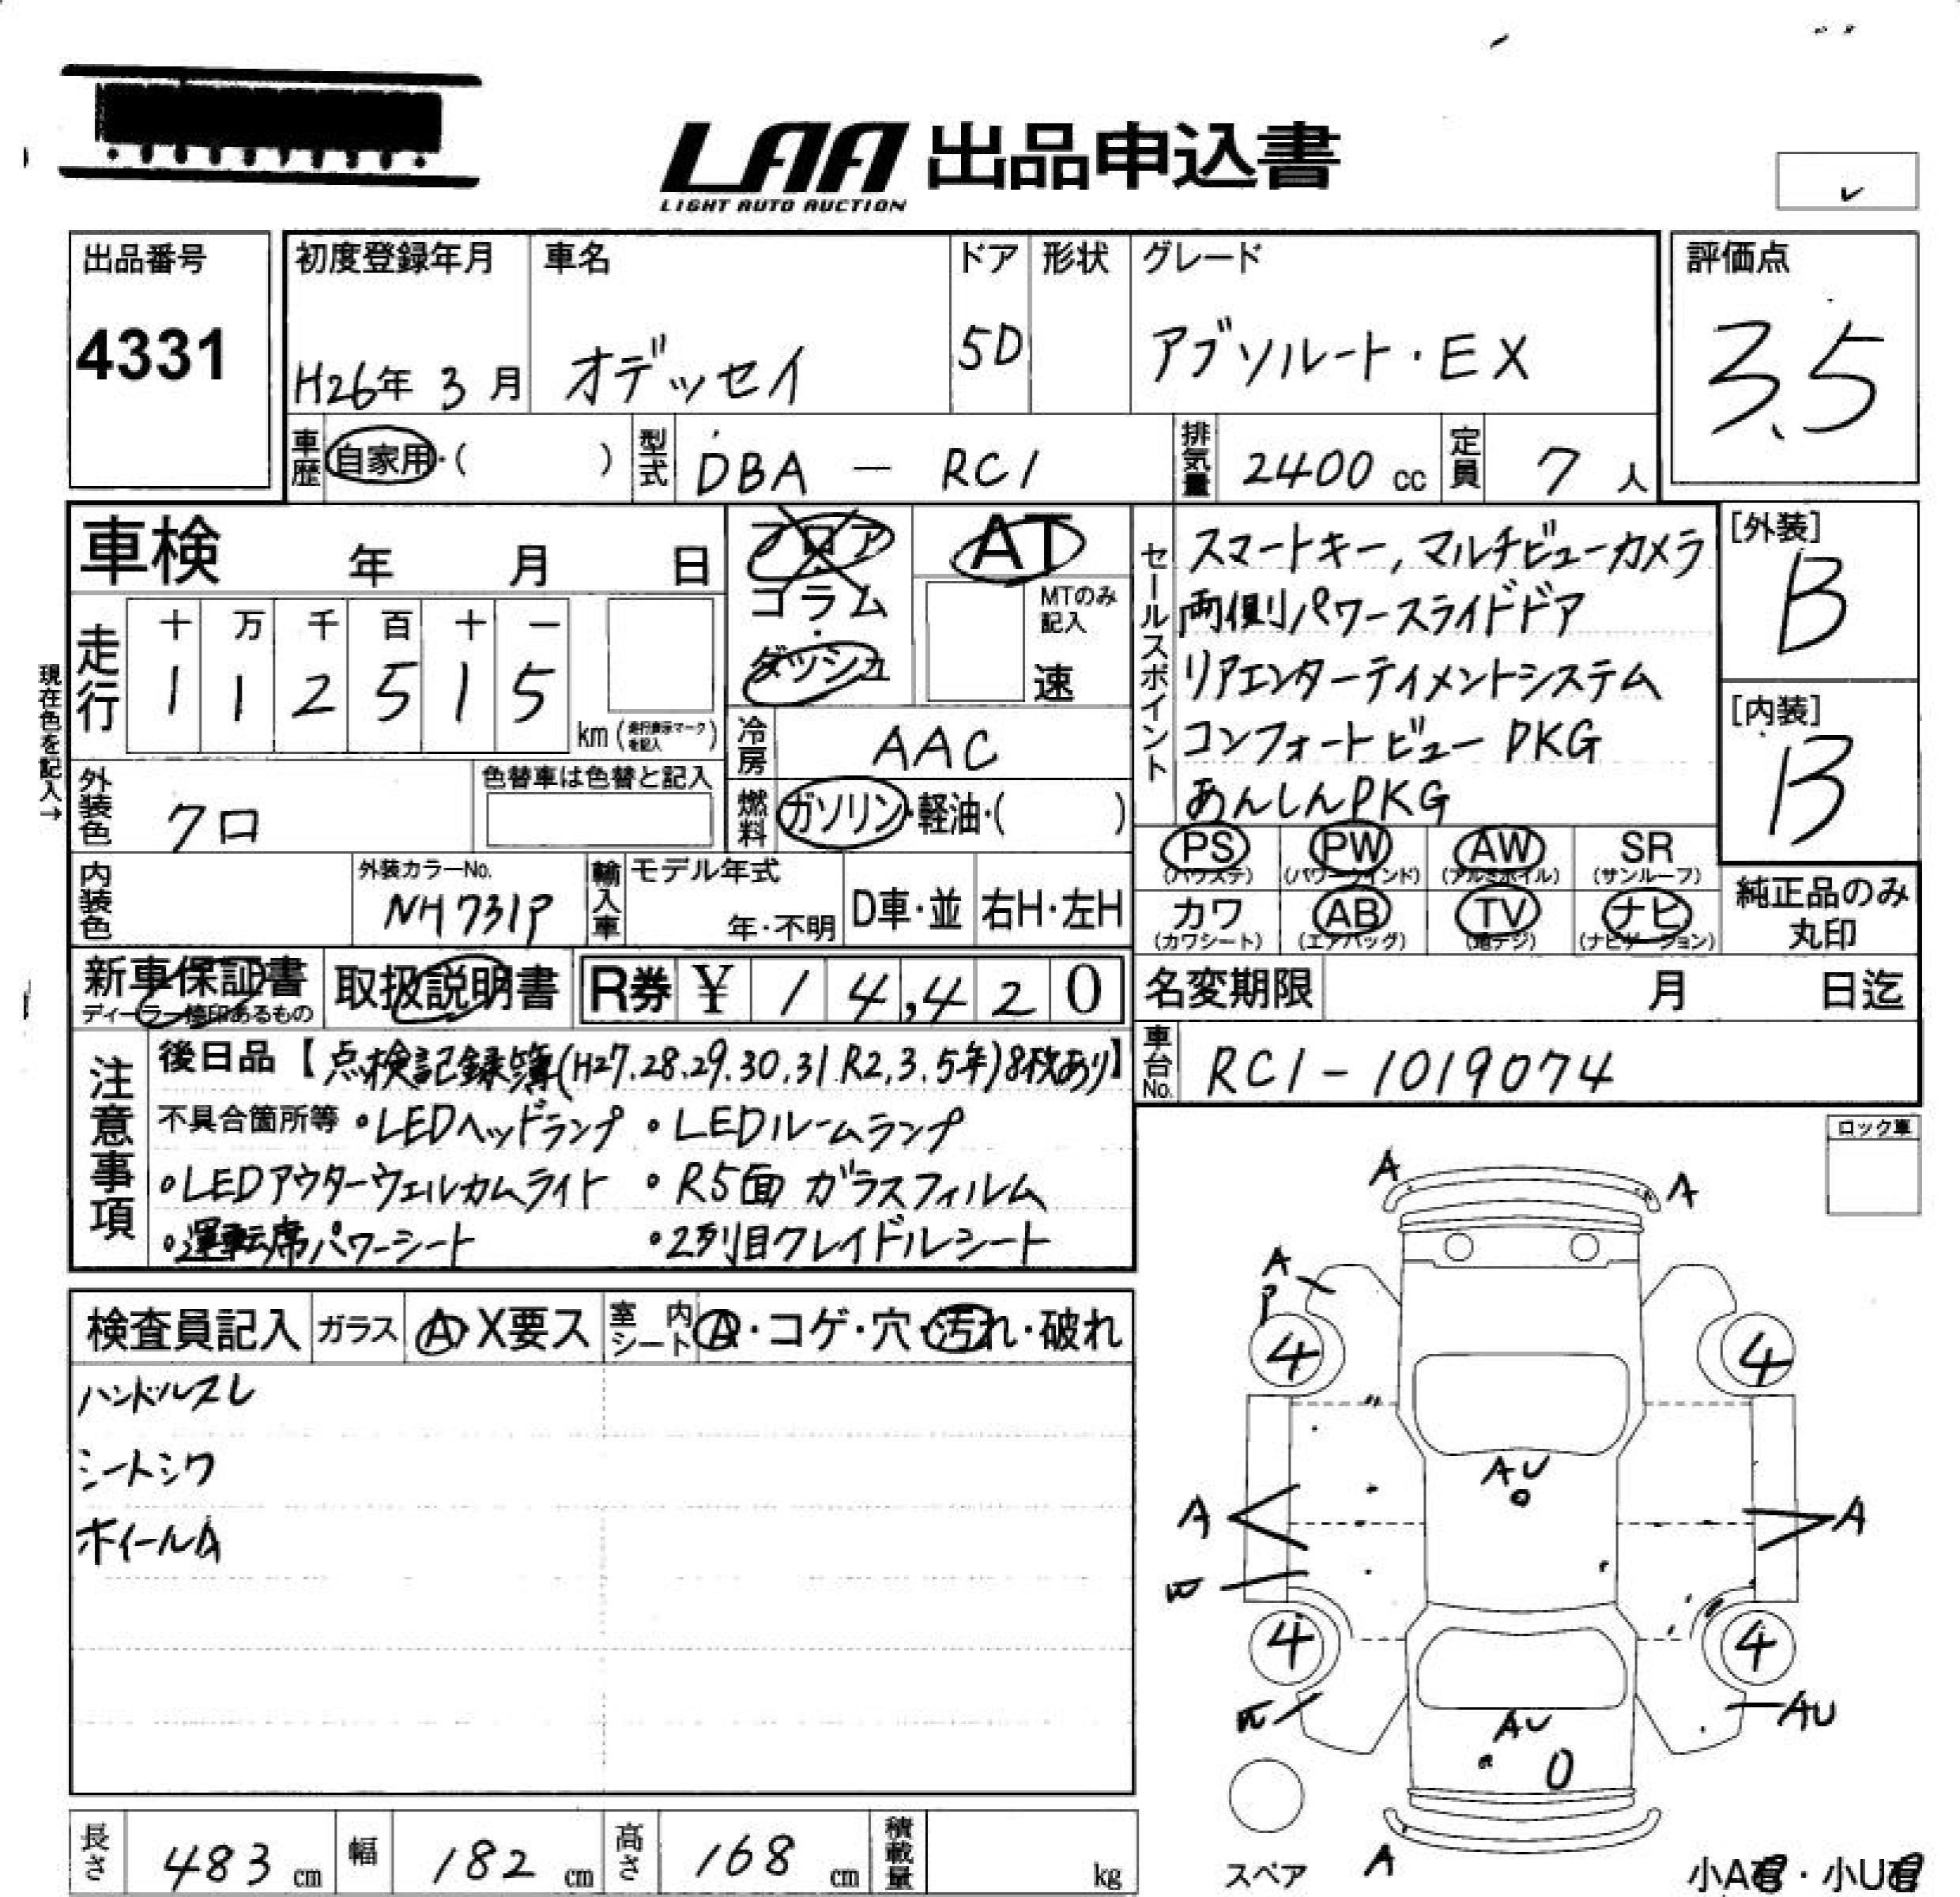 LAA 出品申込書
LIGHT AUTO AUCTION
出品番号
4331
初度登録年月
H26年 3月
車名
オデッセイ
ドア
5D
形状
グレード
アブソルート・EX
評価点
3.5
車歴
自家用・( )
型式
DBA — RC1
排気量
2400 cc
定員
7 人
車検 年 月 日
フロア・コラム・ダッシュ
AT
MTのみ記入
速
現在色を記入→
走行
十 万 千 百 十 一
1 1 2 5 1 5
km (走行表示マークを記入)
冷房
AAC
燃料
ガソリン・軽油・( )
外装色
クロ
色替車は色替と記入
内装色
外装カラーNo.
NH731P
輸入車
モデル年式
年・不明
D車・並
右H・左H
セールスポイント
スマートキー, マルチビューカメラ
両側パワースライドドア
リアエンターティメントシステム
コンフォートビュー PKG
あんしんPKG
[外装]
B
[内装]
B
PS (パワステ)
PW (パワーウインド)
AW (アルミホイル)
SR (サンルーフ)
カワ (カワシート)
AB (エアバッグ)
TV (地デジ)
ナビ (ナビゲーション)
純正品のみ
丸印
新車保証書
ディーラー捺印あるもの
取扱説明書
R券 ¥ 1 4,4 2 0
名変期限 月 日迄
車台No.
RC1-1019074
注意事項
後日品【点検記録簿(H27.28.29.30.31 R2.3.5年)8枚あり】
不具合箇所等 ・LEDヘッドランプ ・LEDルームランプ
・LEDアウターウェルカムライト ・R5面 ガラスフィルム
・運転席パワーシート ・2列目クレイドルシート
ロック車
検査員記入
ガラス
A・X要ス
室内シート
A・コゲ・穴・汚れ・破れ
ハンドルスレ
シートシワ
ホイールA
A
A
A
4
4
AU
A
A
4
4
AU
AU
A
スペア
小A・小U
長さ
483 cm
幅
182 cm
高さ
168 cm
積載量
kg